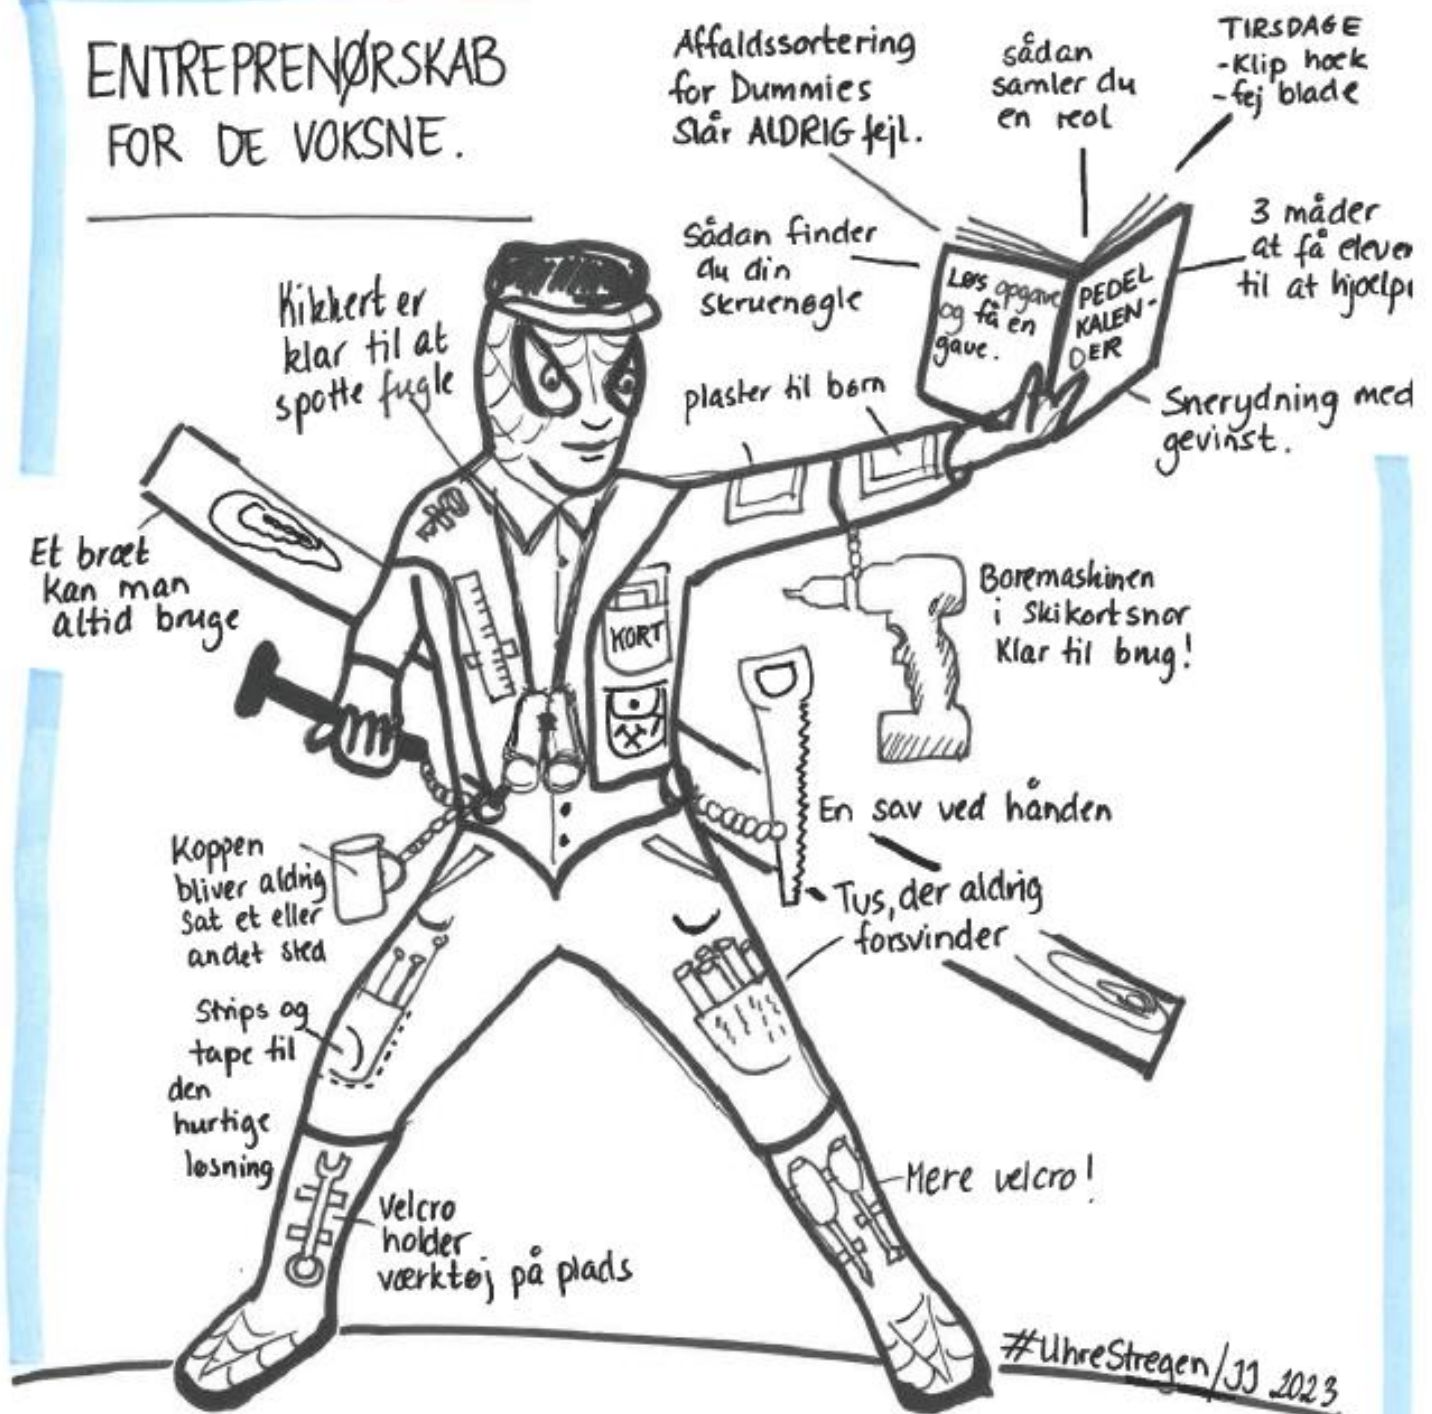 ENTREPRENØRSKAB
FOR DE VOKSNE.
Affaldssortering
for Dummies
Slår ALDRIG fejl.
sådan
samler du
en reol
TIRSDAGE
-Klip hæk
-fej blade
Sådan finder
du din
skruenøgle
3 måder
at få elever
til at hjælpe
Løs opgave
og få en
gave.
PEDEL
KALEN-
DER
Kikkert er
klar til at
spotte fugle
plaster til børn
Snerydning med
gevinst.
Et bræt
kan man
altid bruge
KORT
Boremaskinen
i skikortsnor
Klar til brug!
En sav ved hånden
Koppen
bliver aldrig
Sat et eller
andet sted
Tus, der aldrig
forsvinder
Strips og
tape til
den
hurtige
løsning
Velcro
holder
værktøj på plads
Mere velcro!
#UhreStregen/JJ 2023